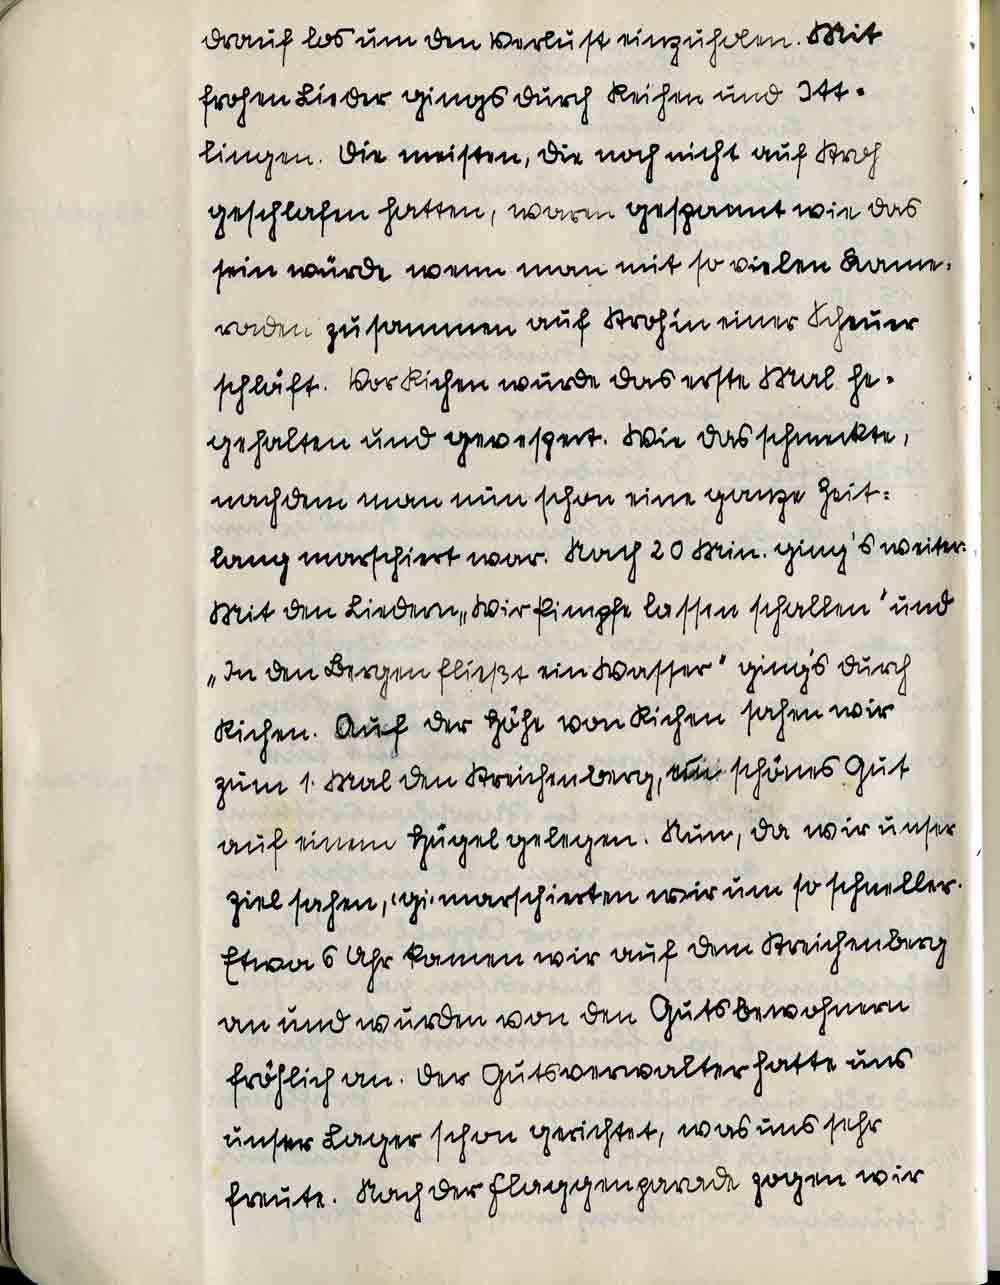 drauf los um den Verlust einzuholen. Mit
frohen Lieder gings durch Reihen und Itt-
lingen. Die meisten, die noch nicht auf Stroh
geschlafen hatten, waren gespannt wie das
sein würde wenn man mit so vielen Kame-
raden zusammen auf Stroh in einer Scheuer
schläft. Vor Richen wurde das erste Mal he-
gehalten und gevespert. Wie das schmeckte,
nachdem man nun schon eine ganze Zeit-
lang marschiert war. Nach 20 Min. ging's weiter.
Mit den Liedern „Wir Pimpfe lassen schallen" und
„In den Bergen fließt ein Wasser" ging's durch
Richen. Auf der Höhe von Richen sahen wir
zum 1. Mal den Streichenberg, ein schönes Gut
auf einem Hügel gelegen. Nun, da wir unser
Ziel sahen, gi marschierten wir um so schneller.
Etwa 6 Uhr kamen wir auf dem Streichenberg
an und wurden von den Gutsbewohnern
fröhlich an. Der Gutsverwalter hatte uns
unser Lager schon gerichtet, was uns sehr
freute. Nach der Flaggenparade zogen wir